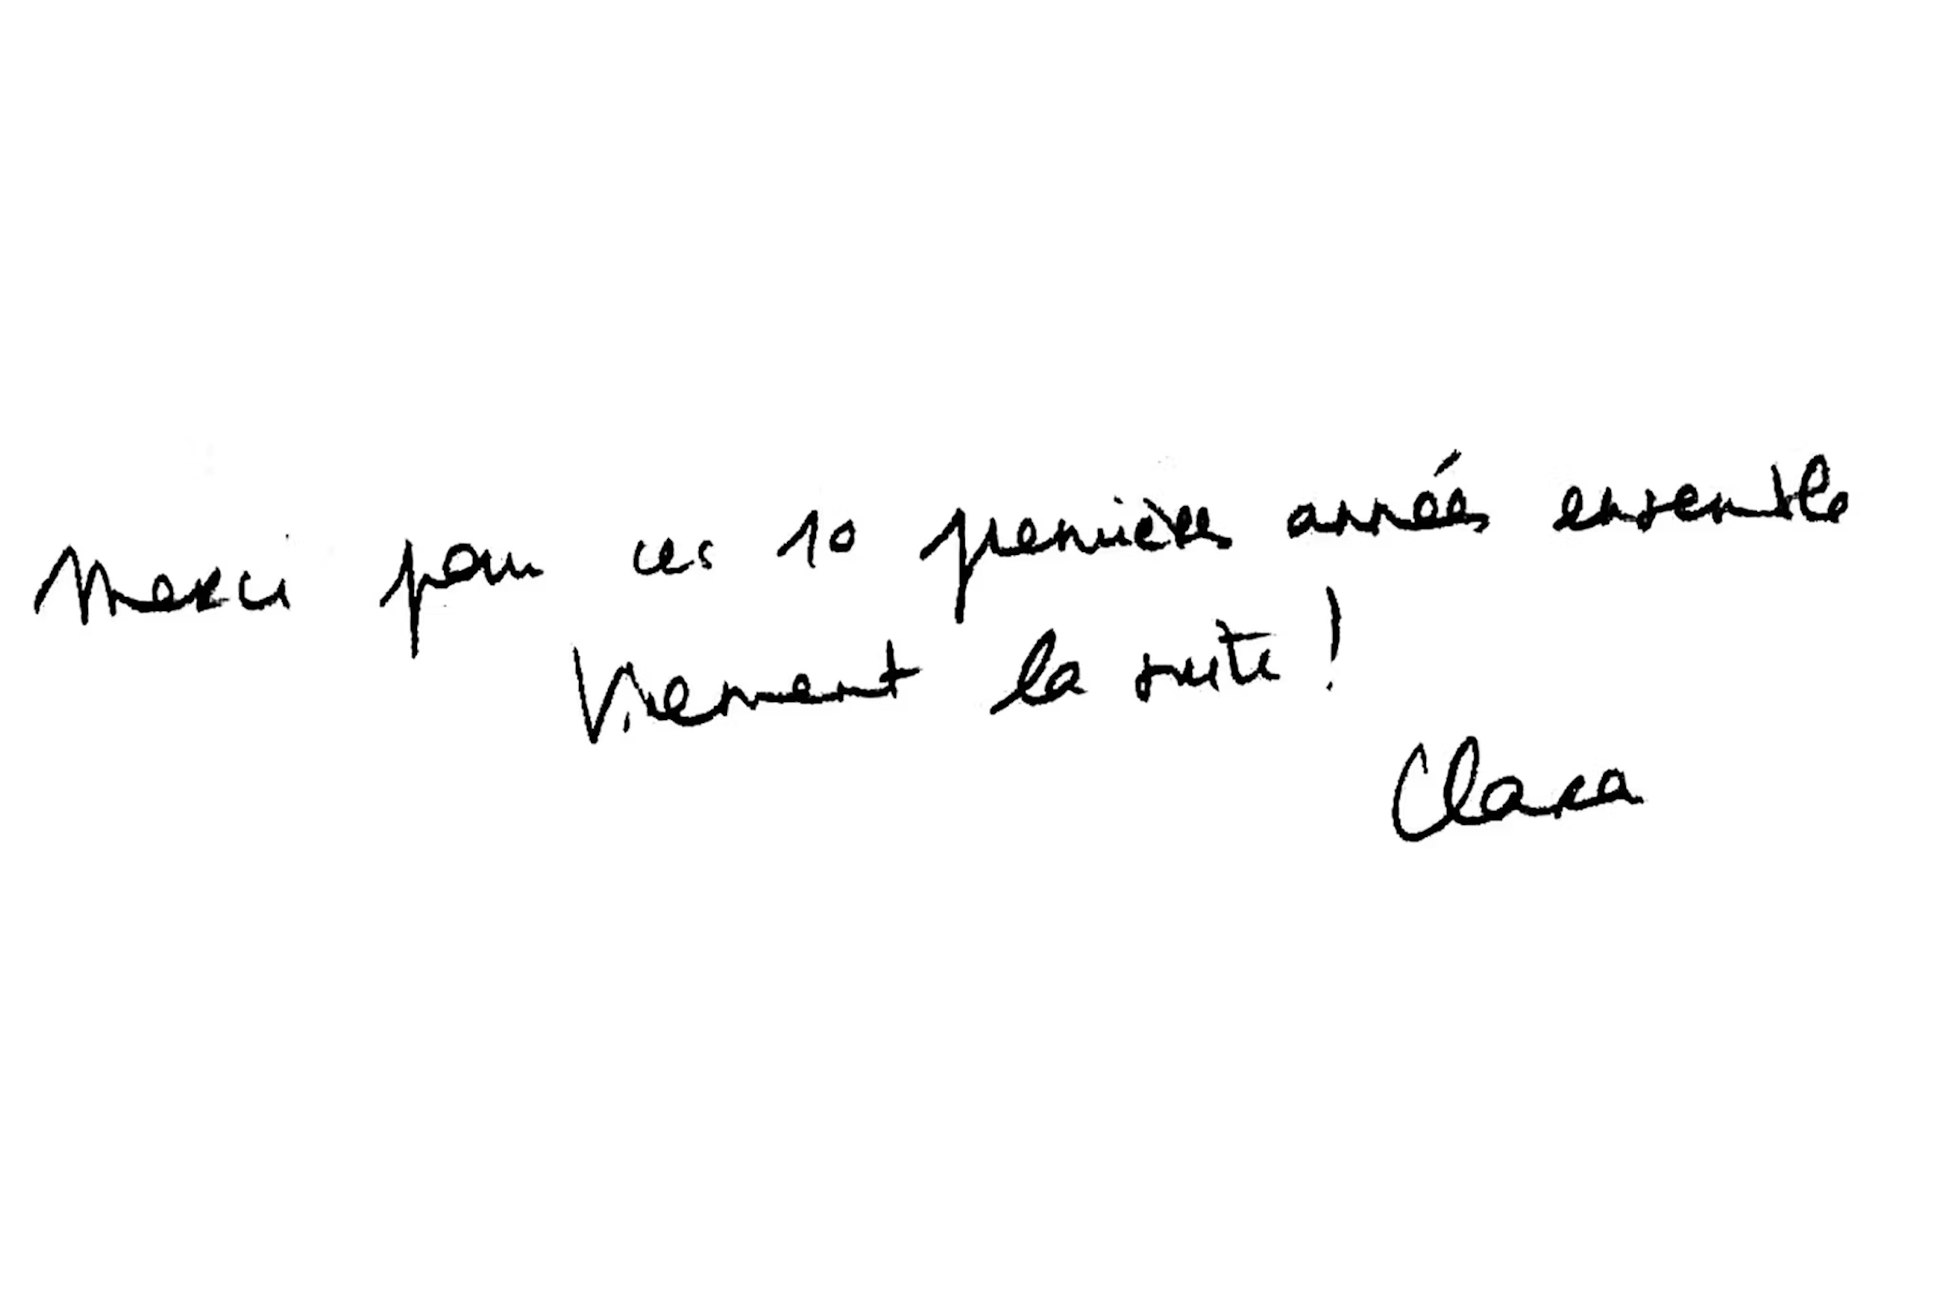 Merci pour ces 10 premières années ensemble
Vivement la suite !
Clara